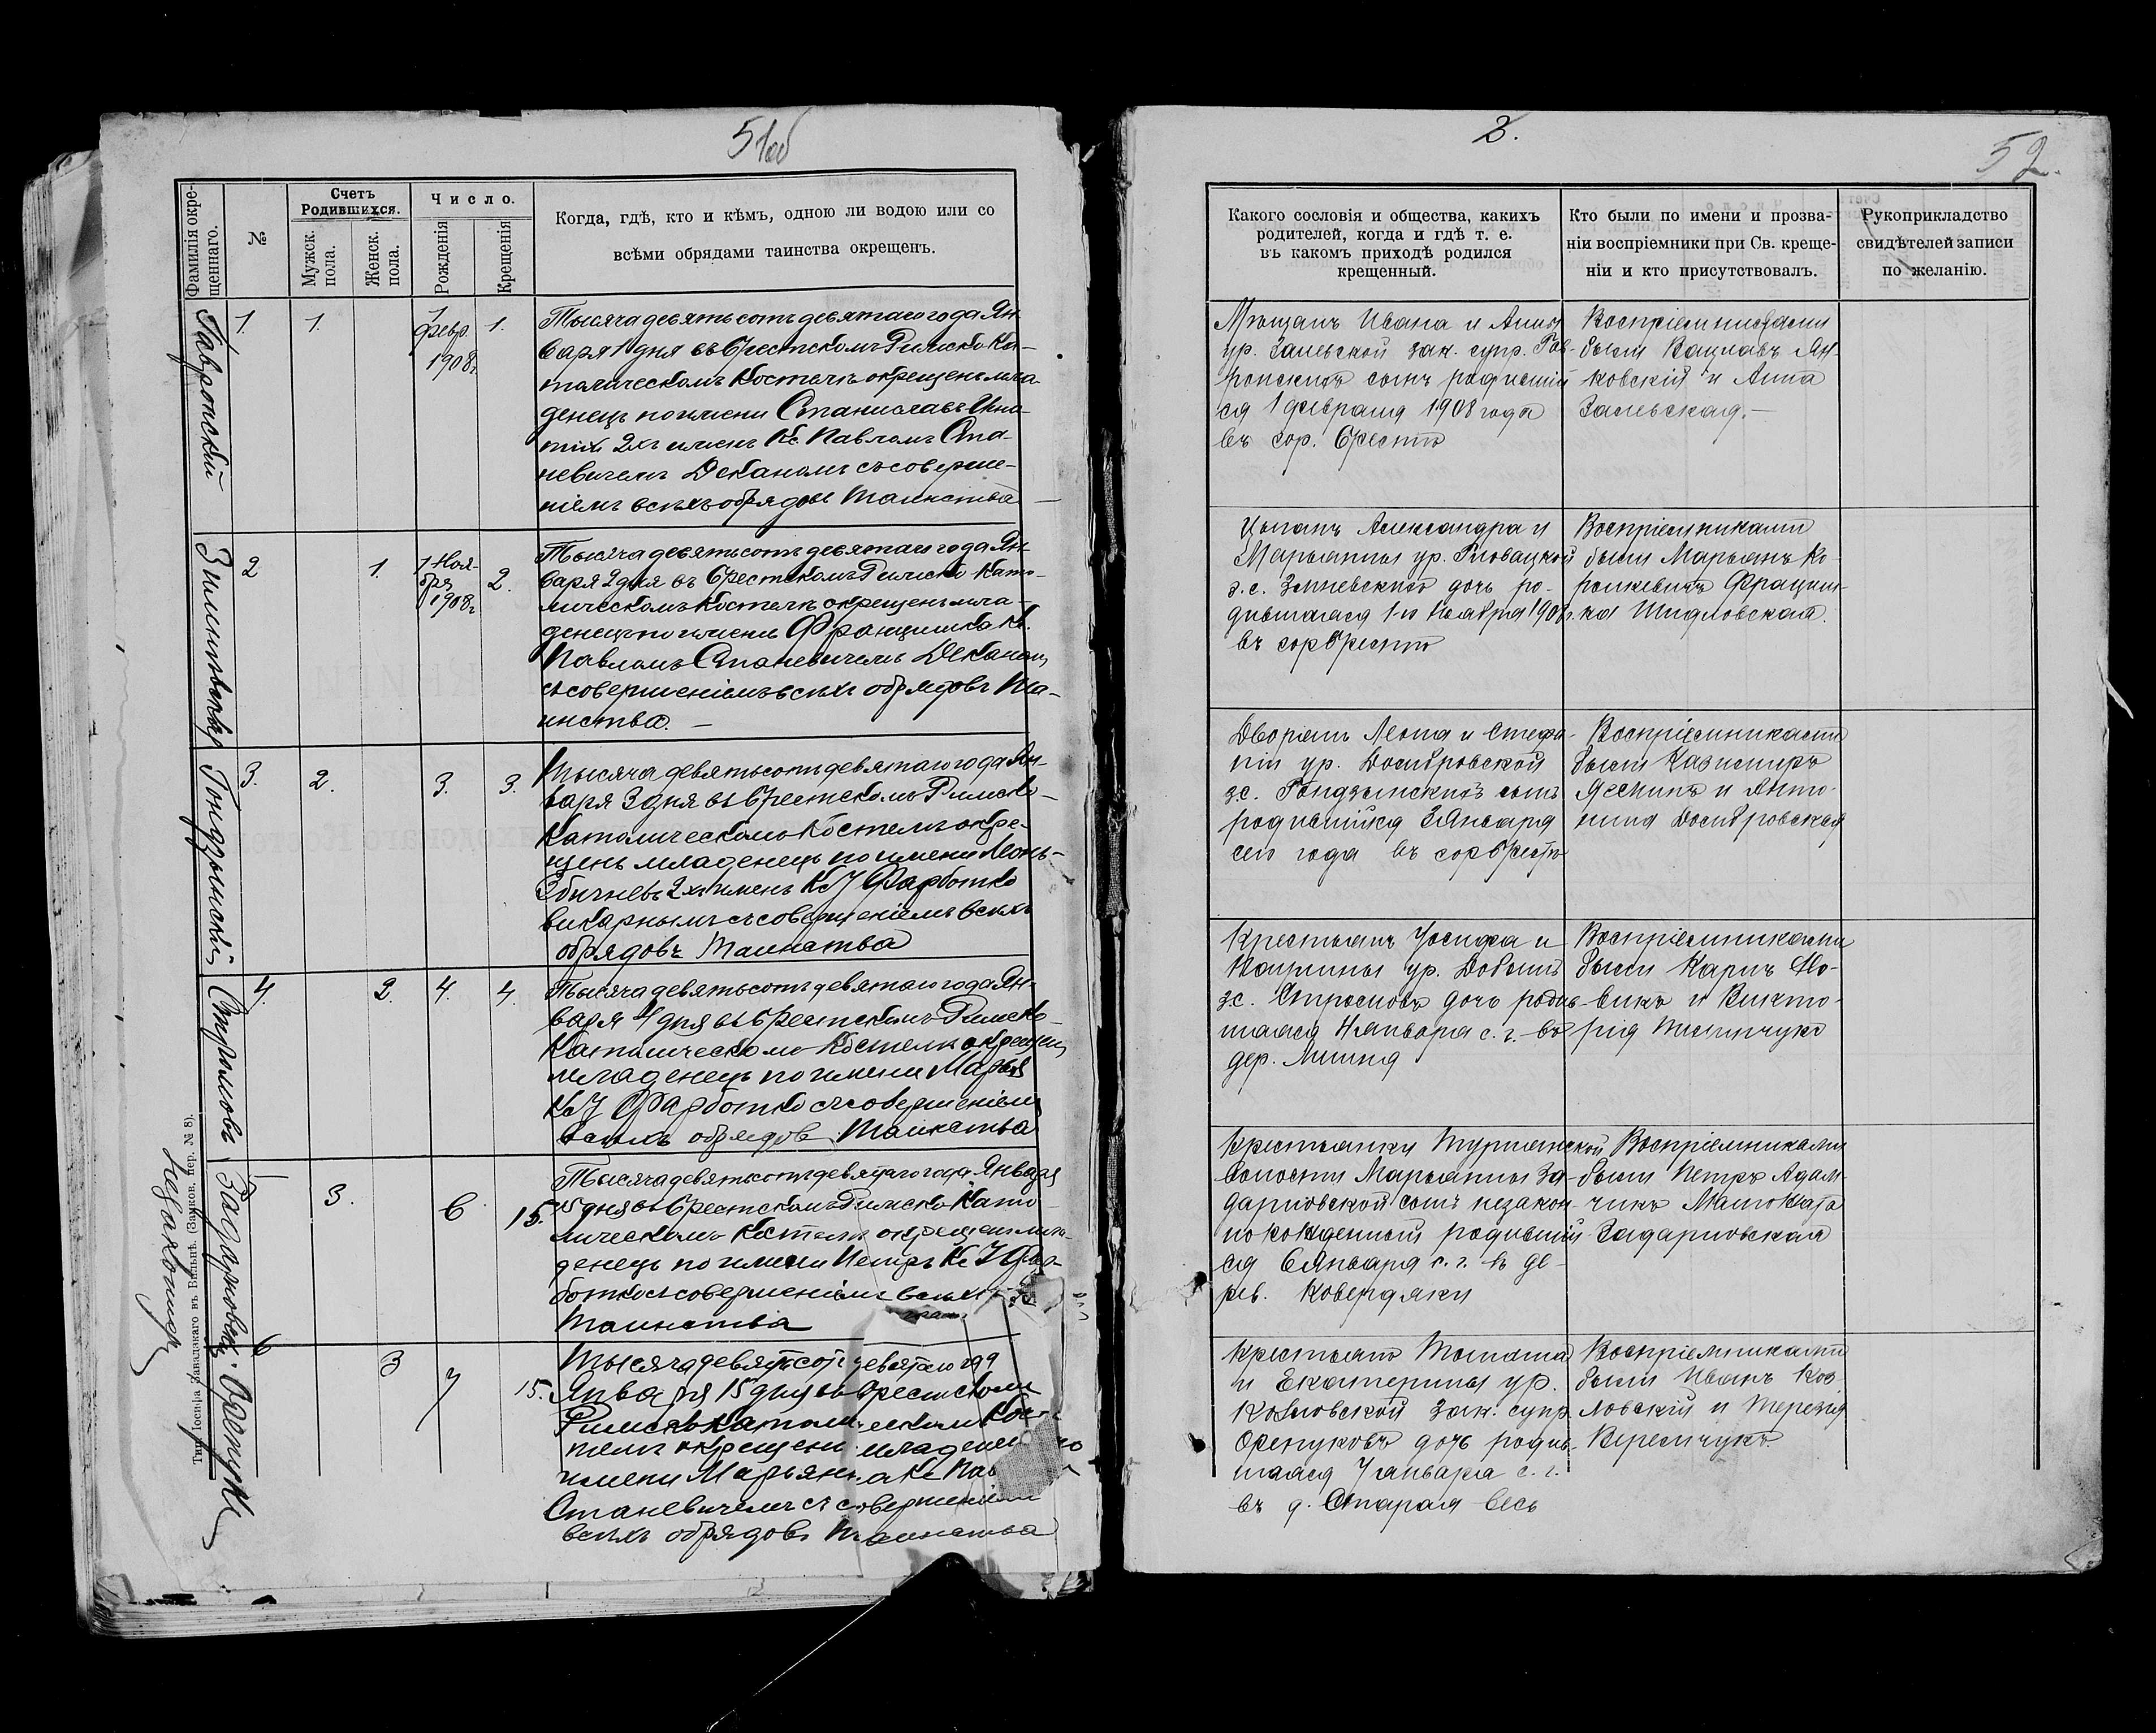 51об
Фамилія окре-
щеннаго.
№
Счетъ
Родившихся.
Мужск.
пола.
Женск.
пола.
Число.
Рожденія
Крещенія
Когда, гдѣ, кто и кѣмъ, одною ли водою или со
всѣми обрядами таинства окрещенъ.
Гавронскій
1.
1.
1
февр.
1908г.
1.
Тысяча девятьсотъ девятаго года Ян-
варя 1 дня въ Брестскомъ Римско Ка-
толическомъ Костелѣ окрещенъ мла-
денецъ по имени Станиславъ
2хъ именъ Кс Павломъ Ста-
невичемъ Деканомъ съ соверше-
ніемъ всѣхъ обрядовъ Таинства
2
1.
1 Ноя-
бря
1908г.
2.
Тысяча девятьсотъ девятаго года Ян-
варя 2 дня въ Брестскомъ Римско Като-
лическомъ Костелѣ окрещенъ мла-
денецъ по имени Францишка Кс.
Павломъ Станевичемъ Деканомъ
съ совершеніемъ всѣхъ обрядовъ Та-
инства. —
Гондзынскій
3.
2.
3.
3.
Тысяча девятьсотъ девятаго года Ян-
варя 3 дня въ Брестскомъ Римско-
Католическомъ Костелѣ окре-
щенъ младенецъ по имени Леонъ-
Збигневъ 2хъ именъ Кс І Фарботко
викарнымъ съ совершеніемъ всѣхъ
обрядовъ Таинства
4.
2.
4.
4.
Тысяча девятьсотъ девятаго года Ян-
варя 4 дня въ Брестскомъ Римско-
Католическомъ Костелѣ окрещенъ
младенецъ по имени Марья
Кс І Фарботко съ совершеніемъ
всѣхъ обрядовъ Таинства
3.
6
15.
Тысяча девятьсотъ девятаго года Января
15 дня въ Брестскомъ Римско Като-
лическомъ Костелѣ окрещенъ мла-
денецъ по имени Петръ Кс І Фар-
ботко съ совершеніемъ всѣхъ
Таинства
6
3
7
15.
Тысяча девятьсотъ девятаго года
Января 15 дня въ Брестскомъ
Римско Католическомъ Кос-
телѣ окрещенъ младенецъ по
имени Марьянна Кс Пав
Станевичемъ съ совершеніемъ
всѣхъ обрядовъ Таинства
Тип. Іосифа Завадзкаго въ Вильнѣ. (Замков. пер. № 8).
2.
52.
Какого сословія и общества, какихъ
родителей, когда и гдѣ т. е.
въ какомъ приходѣ родился
крещенный.
Кто были по имени и прозва-
ніи воспріемники при Св. креще-
ніи и кто присутствовалъ.
Рукоприкладство
свидѣтелей записи
по желанію.
Мѣщанъ Ивана и Анны
ур. Залевской зак. супр. Гав-
ронскихъ сынъ родившій
ся 1 февраля 1908 года
въ гор. Брестѣ
Воспріемниками
были Вацлавъ Ян-
ковскій и Анна
Залевская. —
Александра и
Марьянны ур. Гловацкой
з. с. дочь ро-
дившаяся 1-го Ноября 1908г.
въ гор Брестѣ
Воспріемниками
были Марьянъ
Францишка
Шидловская.
Дворянъ Леона и Стефа-
ніи ур. Домбровской
з. с. Гондзынскихъ сынъ
родившійся 3 Января
сего года въ гор Брестѣ
Воспріемниками
были Казимиръ
Ясскикъ и Анто-
нина Домбровская
Крестьянъ Іосифа и
ур.
з. с. дочь родив-
шаяся 4 января с. г. въ
дер.
Воспріемниками
были Карлъ
и Викто-
рія
Крестьянки Турнянской
волости Марьянны За-
дарновской сынъ незакон-
норожденный родившій-
ся 6 Января с. г. въ де-
рев. Ковердяки
Воспріемниками
были Петръ Адам-
чикъ
Задарновская
Крестьянъ Томаша
и Екатерины ур.
Козловской зак. супр.
дочь родив-
шаяся 7 января с. г.
въ д. Старая Весь
Воспріемниками
были Иванъ Коз-
ловскій и Терезія
Веремчукъ.